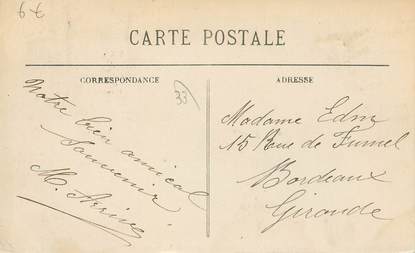 6 €
CARTE POSTALE
CORRESPONDANCE
ADRESSE
33
Notre bien amical
Souvenir
M.
Madame Edm
15 Rue de Fumel
Bordeaux
Gironde